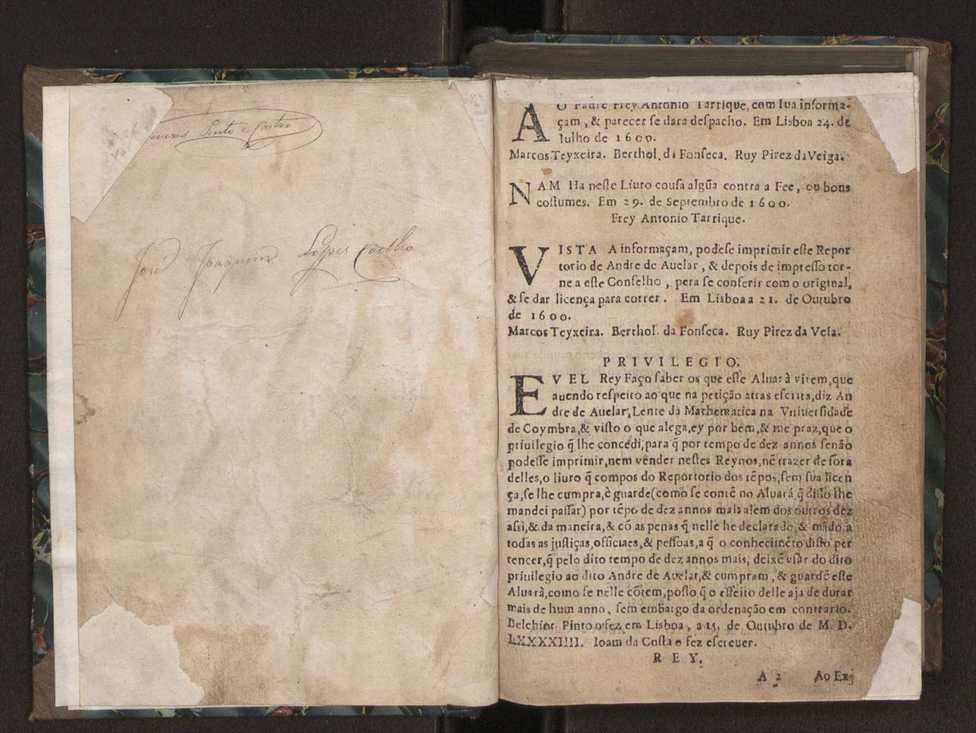 Pinto e Castro
José Joaquim Lopes Coelho
AO Padre Frey Antonio Tarrique, com sua informa-
çam, & parecer se dara despacho. Em Lisboa 24. de
Iulho de 1600.
Marcos Teyxeira. Berthol. da Fonseca. Ruy Pirez da Veiga.
NAM Ha neste Liuro cousa algũa contra a Fee, ou bons
costumes. Em 29. de Septembro de 1600.
Frey Antonio Tarrique.
VISTA A informaçam, podese imprimir este Repor
torio de Andre de Auelar, & depois de impresso tor-
ne a este Conselho, pera se conferir com o original,
& se dar licença para correr. Em Lisboa a 21. de Outubro
de 1600.
Marcos Teyxeira. Berthol. da Fonseca. Ruy Pirez da Veia.
PRIVILEGIO.
EV EL Rey Faço saber os que este Aluarà virem, que
auendo respeito ao que na petição atras escrita, diz An
dre de Auelar, Lente da Mathematica na Vniuersidade
de Coymbra, & visto o que alega, ey por bem, & me praz, que o
priuilegio q̃ lhe concedi, para q̃ por tempo de dez annos senão
podesse imprimir, nem vender nestes Reynos, nẽ trazer de fora
delles, o liuro q̃ compos do Reportorio dos tẽpos, sem sua licen
ça, se lhe cumpra, è guarde (como se contẽ no Aluará, q̃ disso lhe
mandei passar) por tẽpo de dez annos mais alem dos outros dez
assi, & da maneira, & cõ as penas q̃ nelle he declarado, & mãdo a
todas as justiças, officiaes, & pessoas, a q̃ o conhecimẽto disto per
tencer, q̃ pelo dito tempo de dez annos mais, deixẽ vsar do dito
priuilegio ao dito Andre de Auelar, & cumpram, & guardẽ este
Aluarà, como se nelle cõtem, posto q̃ o effeito delle aja de durar
mais de hum anno, sem embargo da ordenação em contrario.
Belchior Pinto o fez em Lisboa, a 15. de Outubro de M. D.
LXXXXIIII. Ioam da Costa o fez escreuer.
REY.
A 2 Ao Ex